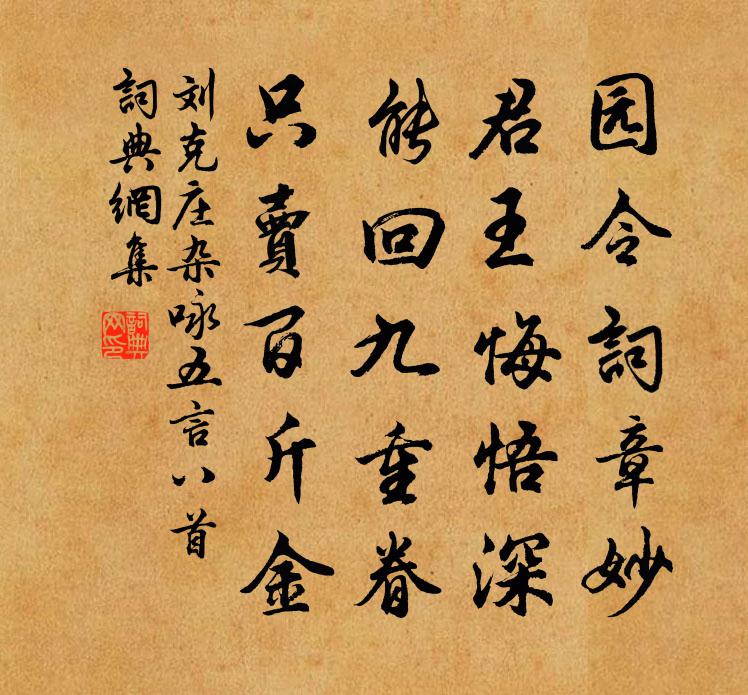 园令词章妙
君王悔悟深
能回九重眷
只賣百斤金
刘克庄杂咏五言八首
詞典網集
詞典网印